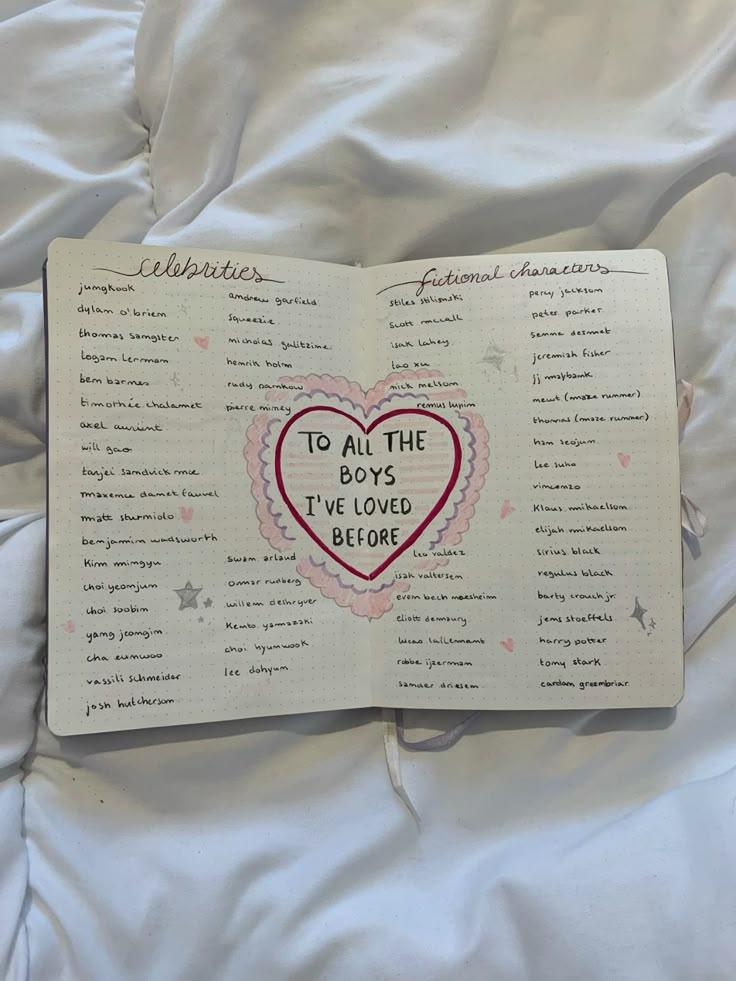 celebrities
jungkook
dylan o'briem
thomas samgster
logam lermman
bem barmes
timothée chalamet
axel auriant
will gao
tanjei samdvick mne
maxemce damet fauvel
matt sturmiolo
bemjamim wadsworth
Kim mimgyu
choi yeomjum
choi soobim
yamg jeomgim
cha eumwoo
vassili schmeider
josh hutchersom
andrew garfield
squeezie
micholas galitzime
hemrik holm
rudy pamkow
pierre mimey
swam arlaud
Ommar rudberg
willem deshryver
Kemto yamazaki
choi hyumwook
lee dohyum
TO ALL THE
BOYS
I'VE LOVED
BEFORE
fictional characters
stiles stilimski
scott mccall
isak lahey
tao xu
mick melsom
remus lupim
leo valdez
isak valtersem
evem bech maesheim
eliott demaury
lucas lallemamt
robbe ijzermam
samder driesem
percy jacksom
peter parker
semme desmet
jeremiah fisher
jj maybamk
mewt (maze rummer)
thomas (maze rummer)
ham seojum
lee suho
vimcemzo
Klaus mikaelsom
elijah mikaelsom
sirius black
regulus black
barty crouch jr.
jems stoeffels
harry potter
tomy stark
cardam greembriar